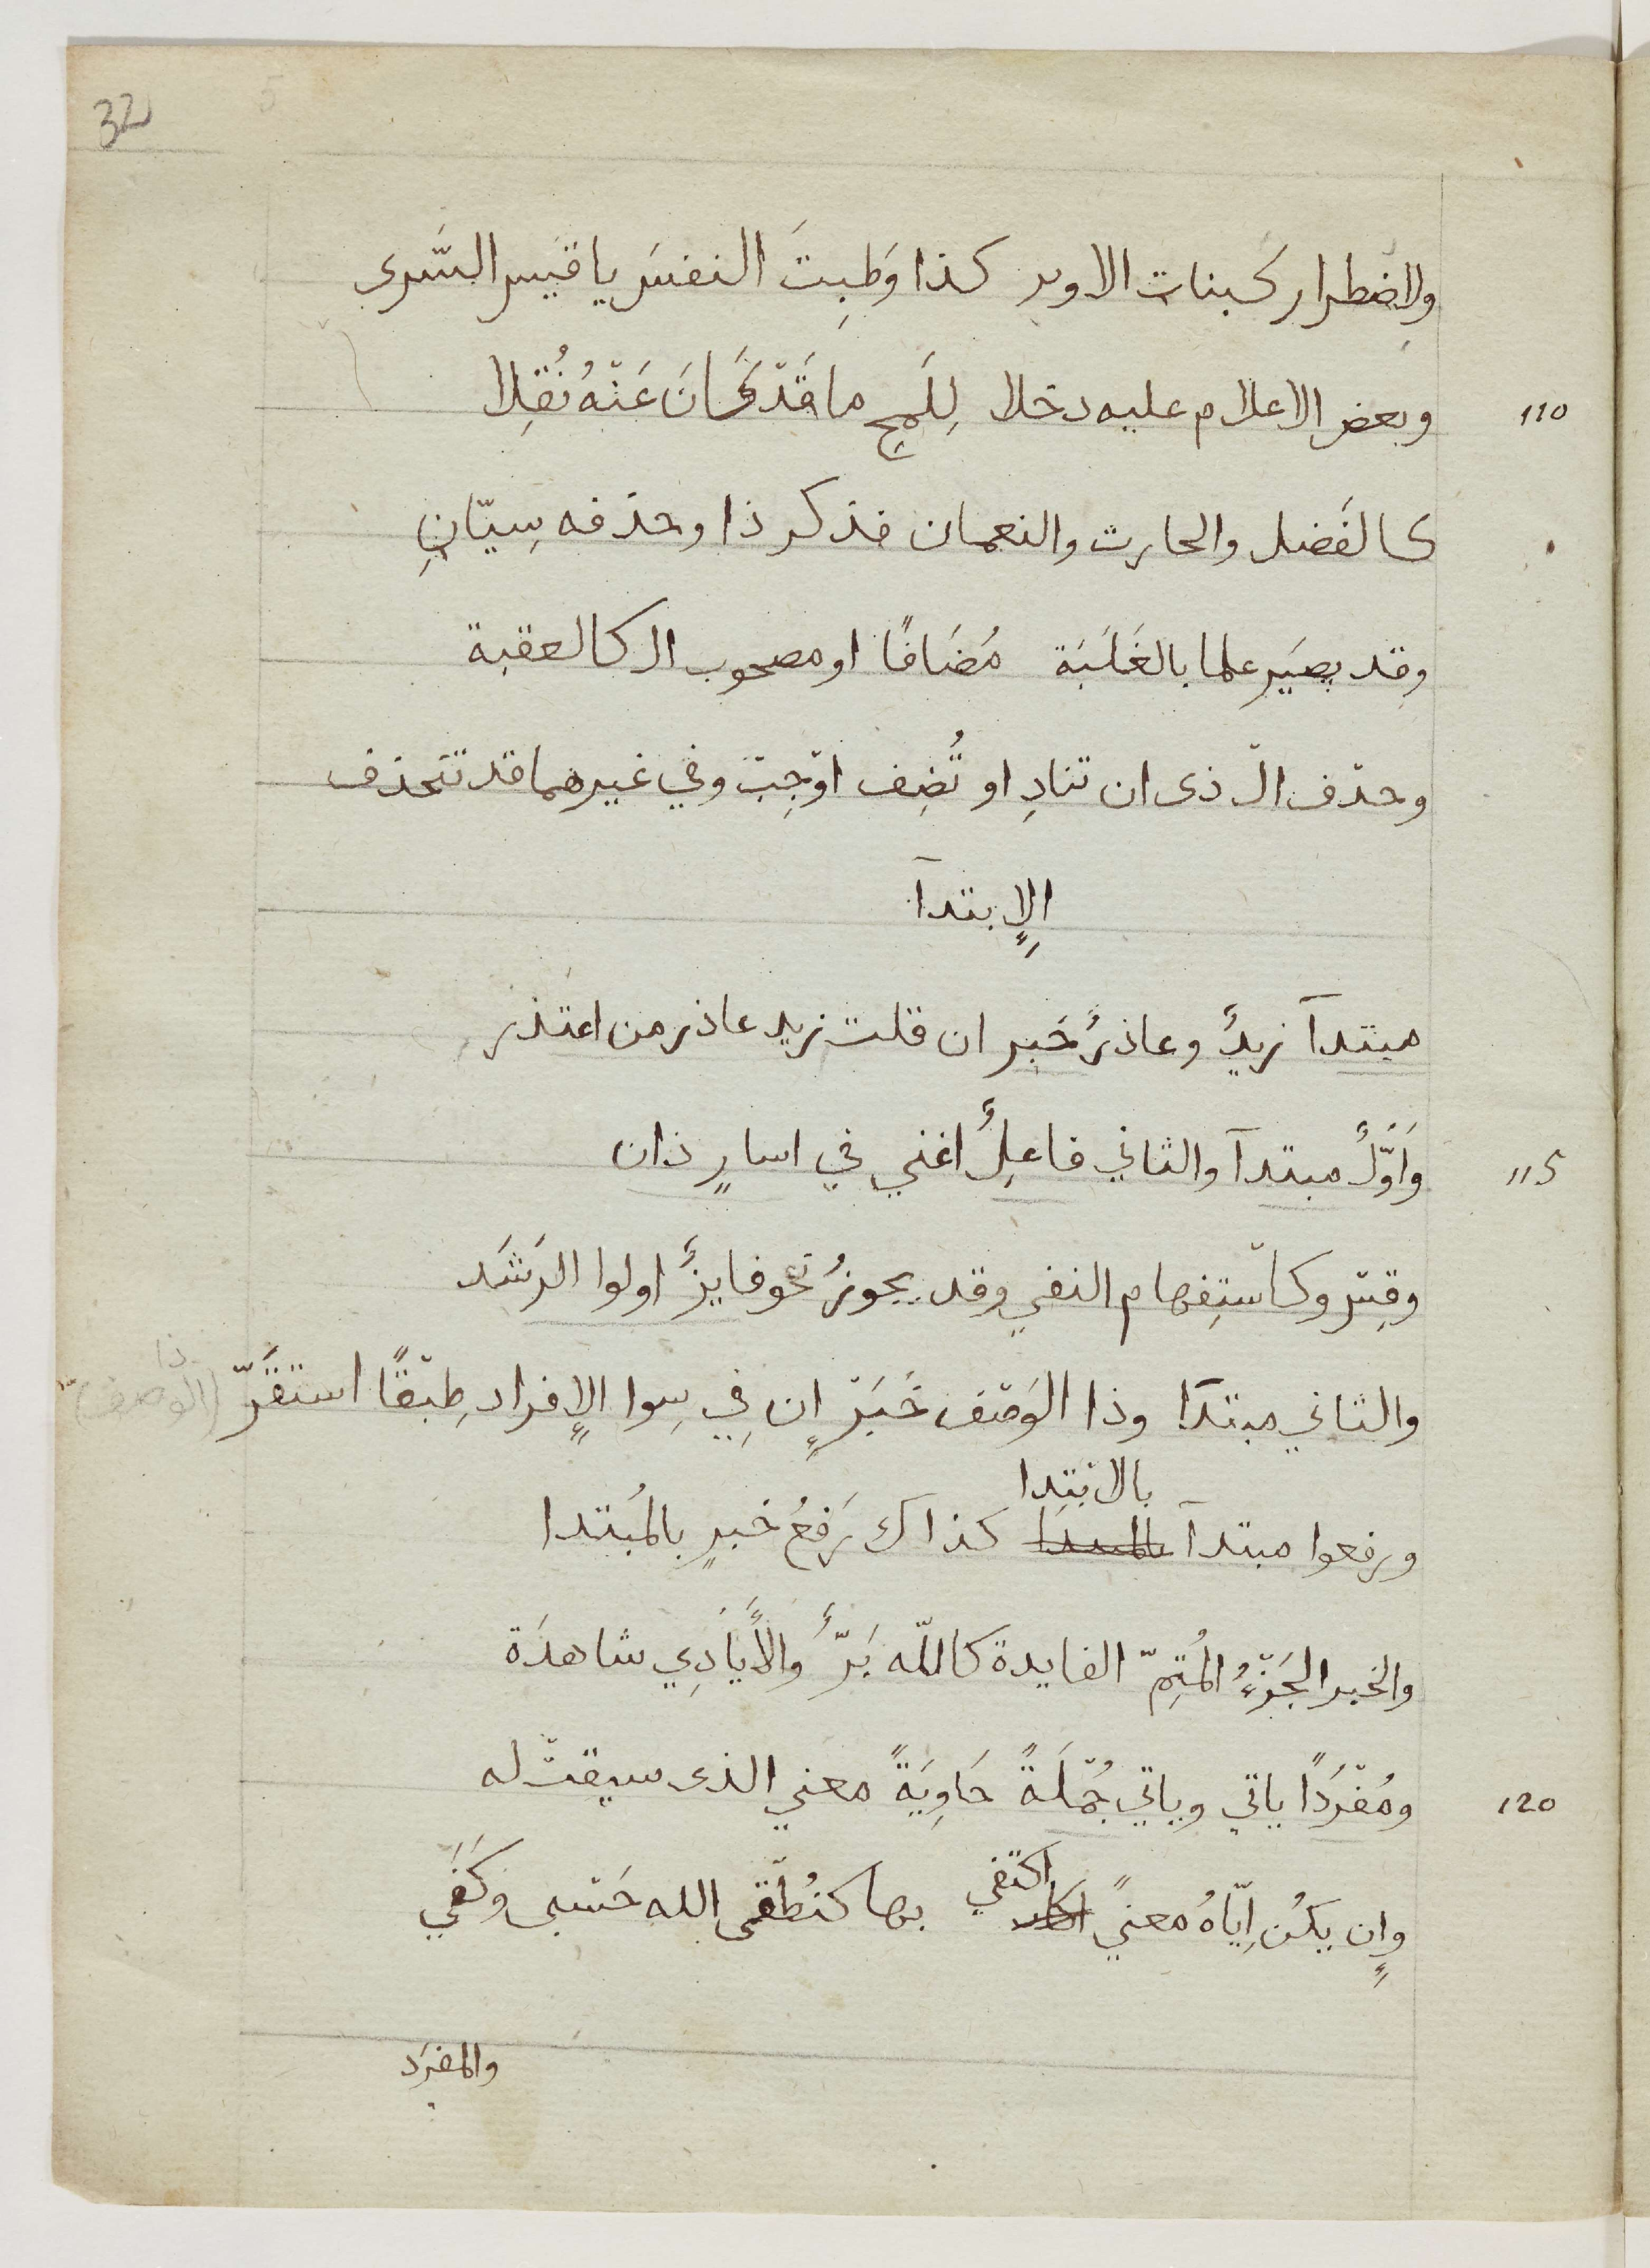 32
ولاِضطرار كبنات الاوبر كذا وَطِبتَ النفسَ يا قَيس السَّرى
110 وبعض الاعلام عليه دخلا لِلَمحِ ما قَدْ كَانَ عَنْهُ نُقِلا
كالفَضل والحارث والنعمان فذكر ذا وحذفه سِيّانِ
وقد يصَير علما بالغَلَبَة مُضَافًا او مصحوب ال كالعقبة
وحذف ال ذى ان تنادِ او تُضِف اوْجِبْ وفي غيرهما قد تنحذف
الإِبتدآ
مبتدآ زيدٌ وعاذرٌ خَبر ان قلت زيد عاذر من اعتذر
115 وَاَوَّلٌ مبتدآ والثاني فاعِلٌ اغني في اسارٍ ذان
وقِسْ وكاسْتِفهام النفي وقد يجوزُ نحو فايزٌ اولوا الرَشَد
والثاني مبتدَا وذا الوَصْف خَبَرْ إن فِي سِوا الإِفراد طِبْقًا استقَرّ
ذا (الوصف)
ورفعوا مبتدآ بالمبتدا بالابْتِدا كذاك رَفعُ خبرٍ بالمُبتدا
والخبر الجُزْءُ المُتِمّ الفايدة كاللّه بَرٌّ وَالأَيَادِي شاهدَة
120 ومُفْرَدًا ياتي وياتي جُمْلَةً حَاوِيَةً معني الذى سيقتْ له
وإِن يكُن اِيّاهُ معنيً اكتفي بها كنُطْقى الله حَسْبى وَكَفَي
والمفرَد